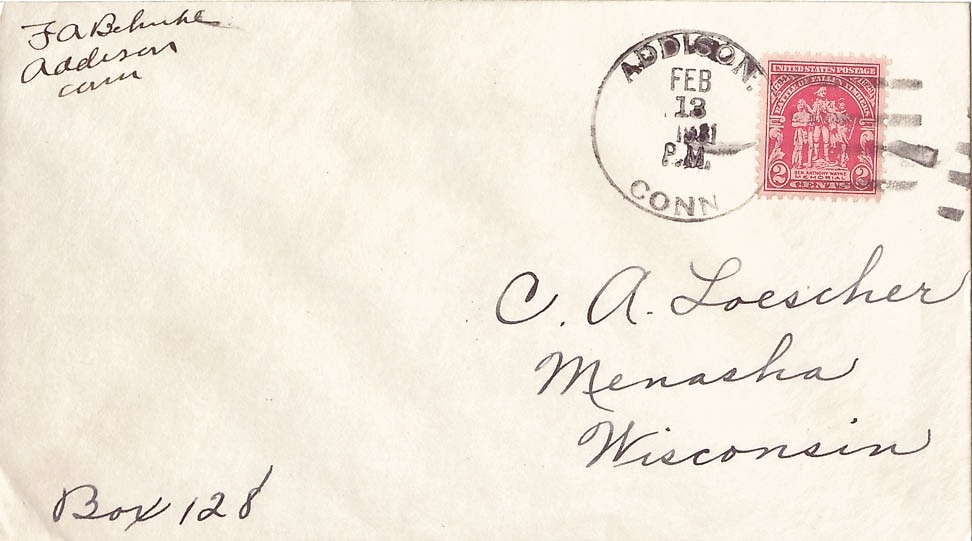 F A Behnke
Addison
Conn
ADDISON.
FEB
13
1931
P.M.
CONN
UNITED STATES POSTAGE
1794 BATTLE OF FALLEN TIMBERS 1929
GEN. ANTHONY WAYNE
MEMORIAL
2 CENTS 2
C. A. Loescher
Menasha
Wisconsin
Box 128